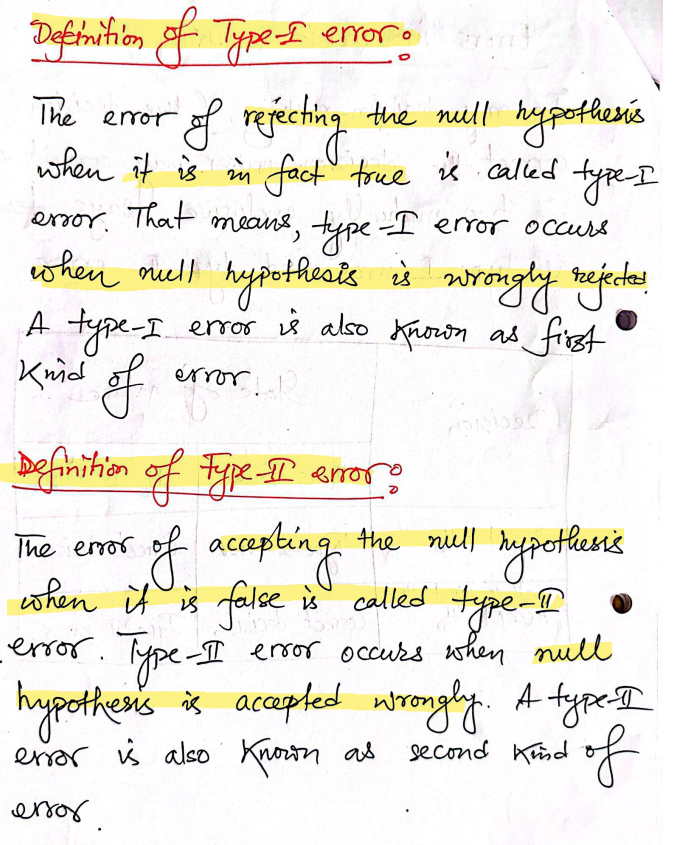 Definition of Type-I error:
The error of rejecting the null hypothesis
when it is in fact true is called type-I
error. That means, type-I error occurs
when null hypothesis is wrongly rejected.
A type-I error is also known as first
Knid of error.
Definition of Type-II error:
The error of accepting the null hypothesis
when it is false is called type-II
error. Type-II error occurs when null
hypothesis is accepted wrongly. A type-II
error is also Known as second kind of
error.